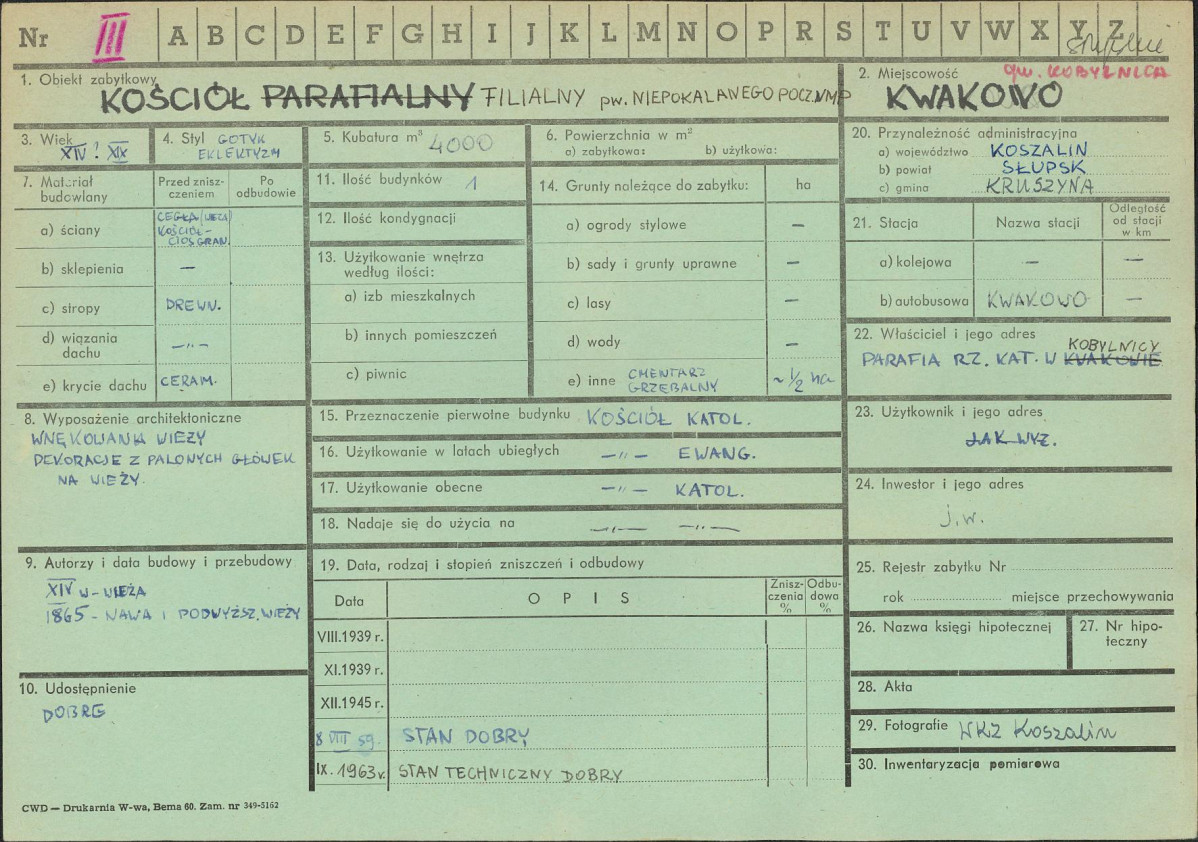 Nr III A B C D E F G H I J K L M N O P R S T U V W X Y Z
1. Obiekt zabytkowy
KOŚCIÓŁ PARAFIALNY FILIALNY pw. NIEPOKALANEGO POCZ. NMP
2. Miejscowość gw. KOBYLNICA
KWAKOWO
3. Wiek
XIV? XIX
4. Styl GOTYK
EKLEKTYZM
5. Kubatura m³ 4000
6. Powierzchnia w m²
a) zabytkowa: b) użytkowa:
7. Materiał budowlany
Przed zniszczeniem
Po odbudowie
a) ściany CEGŁA (WIEŻA)
KOŚCIÓŁ-
CIOS GRAN.
b) sklepienia —
c) stropy DREWN.
d) wiązania dachu —"—
e) krycie dachu CERAM.
8. Wyposażenie architektoniczne
WNĘKOWANIA WIEŻY
DEKORACJE Z PALONYCH GŁÓWEK
NA WIEŻY.
9. Autorzy i data budowy i przebudowy
XIV W - WIEŻA
1865 - NAWA I PODWYŻSZ. WIEŻY
10. Udostępnienie
DOBRE
11. Ilość budynków 1
12. Ilość kondygnacji
13. Użytkowanie wnętrza
według ilości:
a) izb mieszkalnych
b) innych pomieszczeń
c) piwnic
14. Grunty należące do zabytku: ha
a) ogrody stylowe —
b) sady i grunty uprawne —
c) lasy —
d) wody —
e) inne CMENTARZ
GRZEBALNY ~ 1/2 ha
15. Przeznaczenie pierwotne budynku KOŚCIÓŁ KATOL.
16. Użytkowanie w latach ubiegłych —"— EWANG.
17. Użytkowanie obecne —"— KATOL.
18. Nadaje się do użycia na —"— —"—
19. Data, rodzaj i stopień zniszczeń i odbudowy
Data OPIS Zniszczenia % Odbudowa %
VIII.1939 r.
XI.1939 r.
XII.1945 r.
8 VIII 59. STAN DOBRY
IX. 1963 r. STAN TECHNICZNY DOBRY
20. Przynależność administracyjna
a) województwo KOSZALIN
b) powiat SŁUPSK
c) gmina KRUSZYNA
21. Stacja Nazwa stacji Odległość od stacji w km
a) kolejowa — —
b) autobusowa KWAKOWO —
22. Właściciel i jego adres
KOBYLNICY
PARAFIA RZ. KAT. W KWAKOWIE
23. Użytkownik i jego adres
JAK WYŻ.
24. Inwestor i jego adres
j.w.
25. Rejestr zabytku Nr
rok miejsce przechowywania
26. Nazwa księgi hipotecznej
27. Nr hipoteczny
28. Akta
29. Fotografie WKZ Koszalin
30. Inwentaryzacja pomiarowa
CWD — Drukarnia W-wa, Bema 60. Zam. nr 349-5162